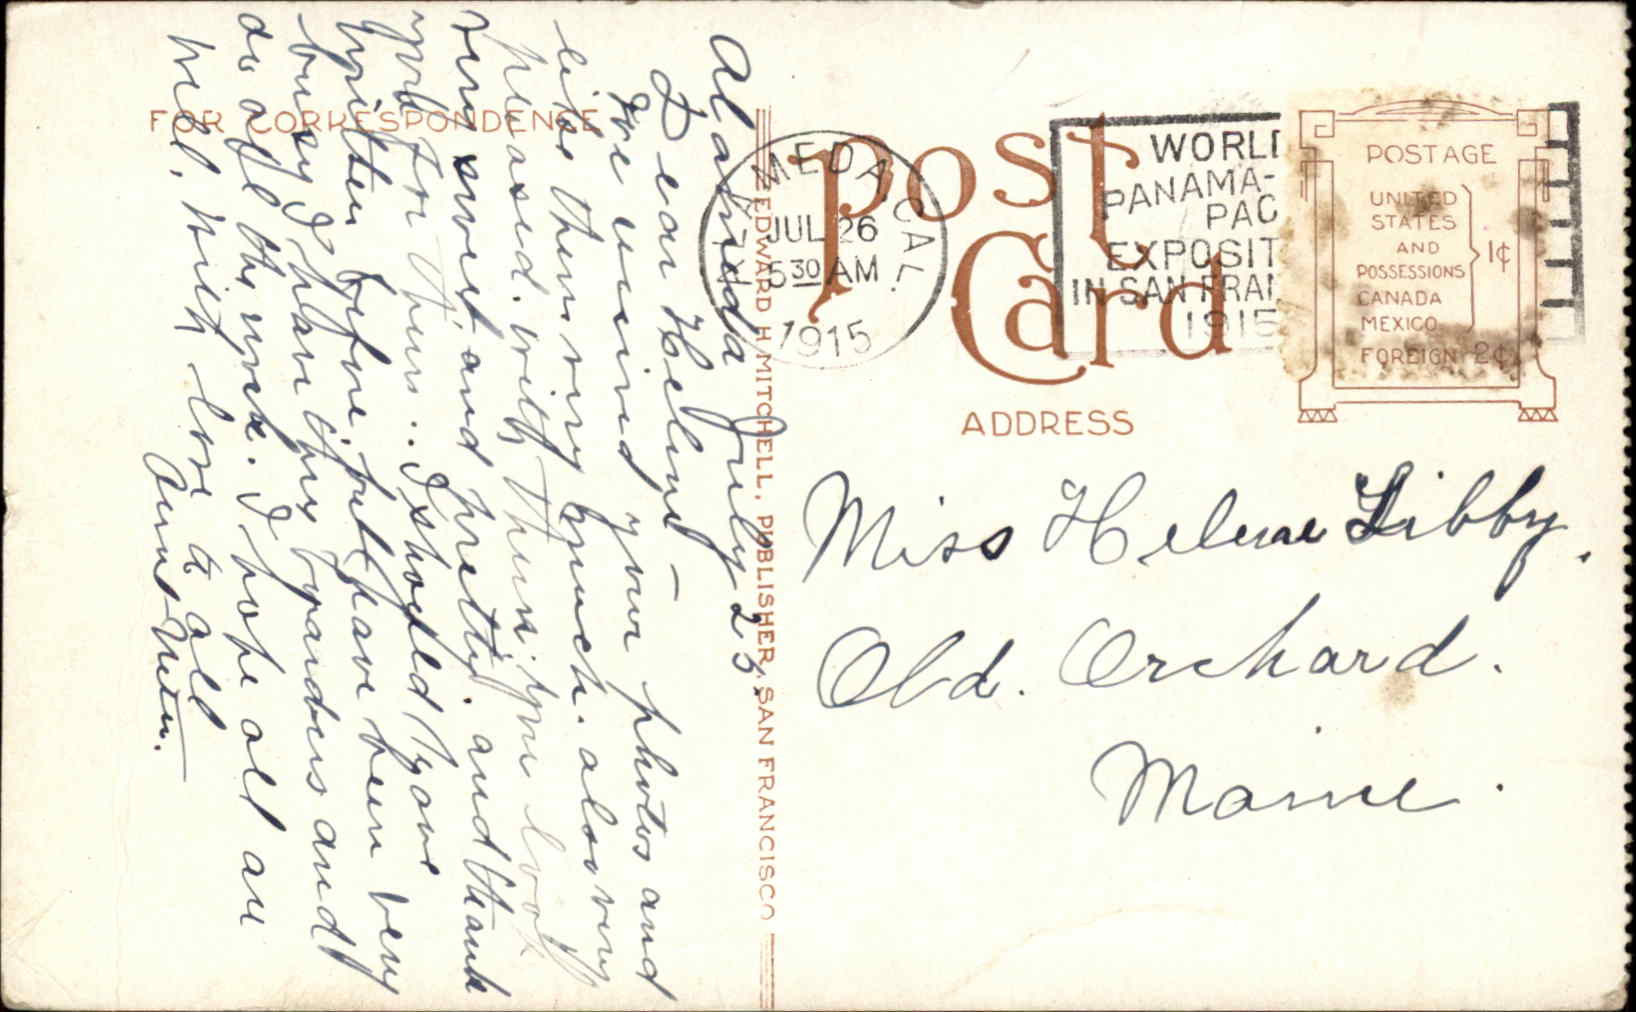 FOR CORRESPONDENCE
Alameda July 25.
Dear Helene –
We received your photos and
like them very much. also very
pleased with them. you look
very sweet and pretty. and thank
you for them.. I should have
written before, but have been very
busy. I have my boarders and
do all the work. I hope all are
well, with love to all
Aunt
EDWARD H MITCHELL, PUBLISHER, SAN FRANCISCO
Post
Card
ALAMEDA, CAL.
JUL 26
5 30 AM
1915
WORL
PANAMA-
PAC
EXPOSIT
IN SAN FRAN
1915
POSTAGE
UNITED
STATES
AND
POSSESSIONS
CANADA
MEXICO
1¢
FOREIGN 2¢
ADDRESS
Miss Helene Libby.
Old. Orchard.
Maine.